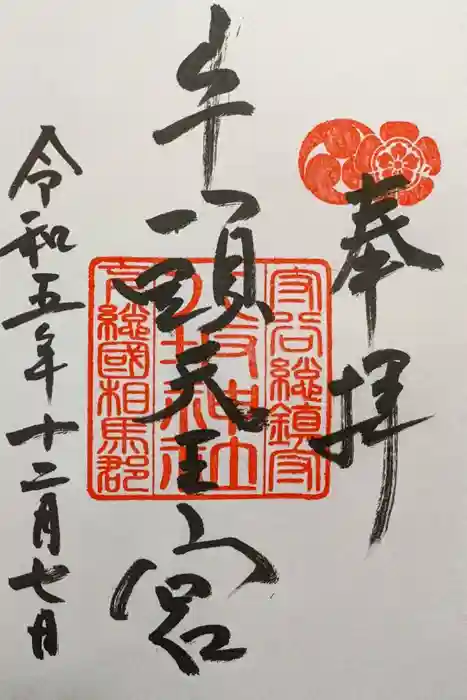 奉拝
牛頭天王宮
守谷総鎮守
八坂神社
下総國相馬郡
令和五年十二月七日